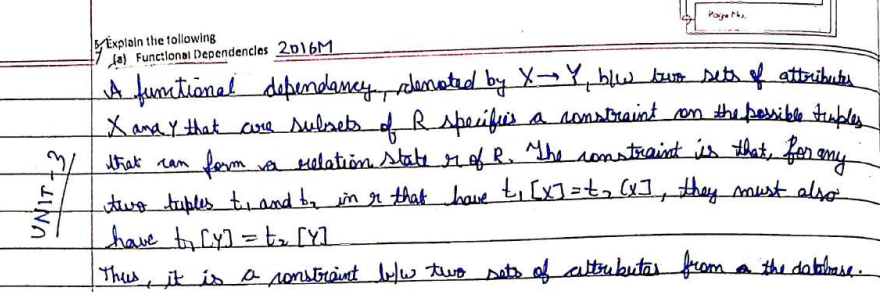 Page No.
5. Explain the following
(a) Functional Dependencies 2016M
A functional dependancy, denoted by X → Y, b/w two sets of attributes
X and Y that are subsets of R specifies a constraint on the possible tuples
that can form a relation state r of R. The constraint is that, for any
UNIT-3
two tuples t₁ and t₂ in r that have t₁[X] = t₂[X], they must also
have t₁[Y] = t₂[Y]
Thus, it is a constraint b/w two sets of attributes from the database.